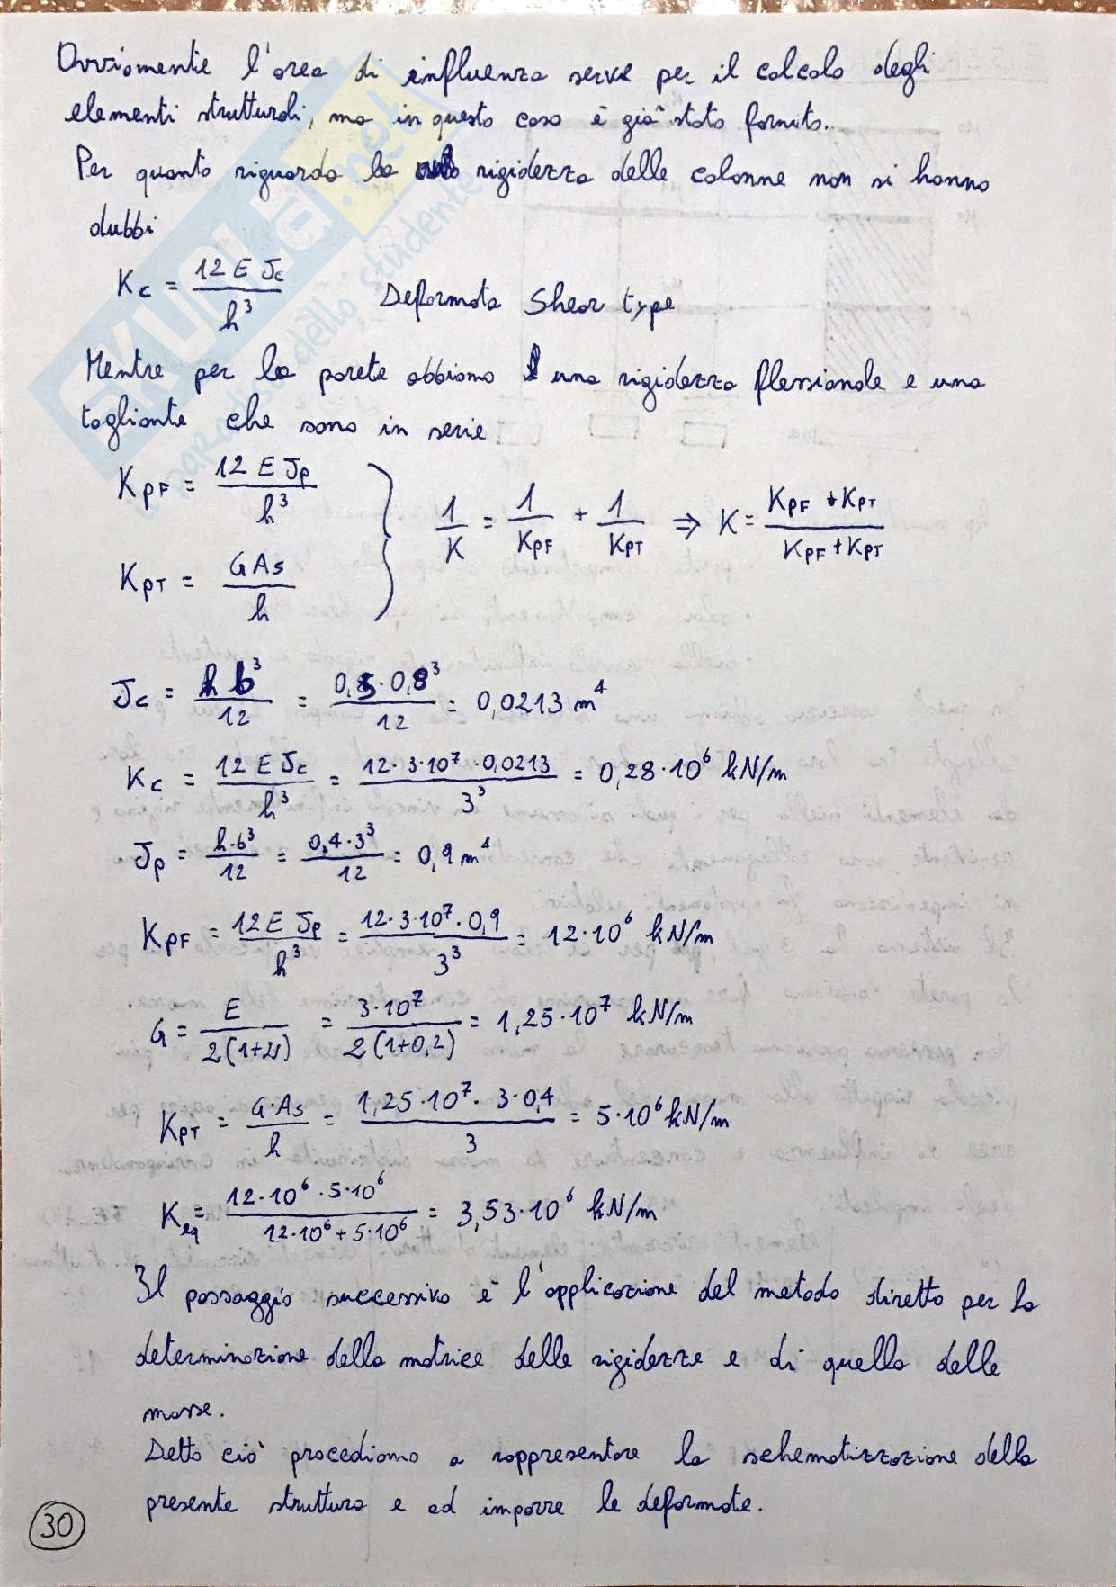 Ovviamente l'area di influenza serve per il calcolo degli
elementi strutturali, ma in questo caso è già stato fornito.
Per quanto riguarda la rigidezza delle colonne non si hanno
dubbi
Kc = 12 E Jc / h³ Deformata Shear type
Mentre per la parete abbiamo una rigidezza flessionale e una
tagliante che sono in serie
KPF = 12 E Jp / h³
1/K = 1/KPF + 1/KPT ⇒ K = KPF * KPT / KPF + KPT
KPT = G As / h
Jc = h b³ / 12 = 0,5 · 0,8³ / 12 = 0,0213 m⁴
Kc = 12 E Jc / h³ = 12 · 3·10⁷ · 0,0213 / 3³ = 0,28·10⁶ kN/m
Jp = h·b³ / 12 = 0,4·3³ / 12 = 0,9 m⁴
KPF = 12 E Jp / h³ = 12·3·10⁷·0,9 / 3³ = 12·10⁶ kN/m
G = E / 2(1+ν) = 3·10⁷ / 2(1+0,2) = 1,25·10⁷ kN/m
KPT = G·As / h = 1,25·10⁷ · 3·0,4 / 3 = 5·10⁶ kN/m
Keq = 12·10⁶ · 5·10⁶ / 12·10⁶ + 5·10⁶ = 3,53·10⁶ kN/m
Il passaggio successivo è l'applicazione del metodo diretto per la
determinazione della matrice delle rigidezze e di quella delle
masse.
Detto ciò procediamo a rappresentare la schematizzazione della
presente struttura e ad imporre le deformate.
30
SKUOLA.net
dello studente